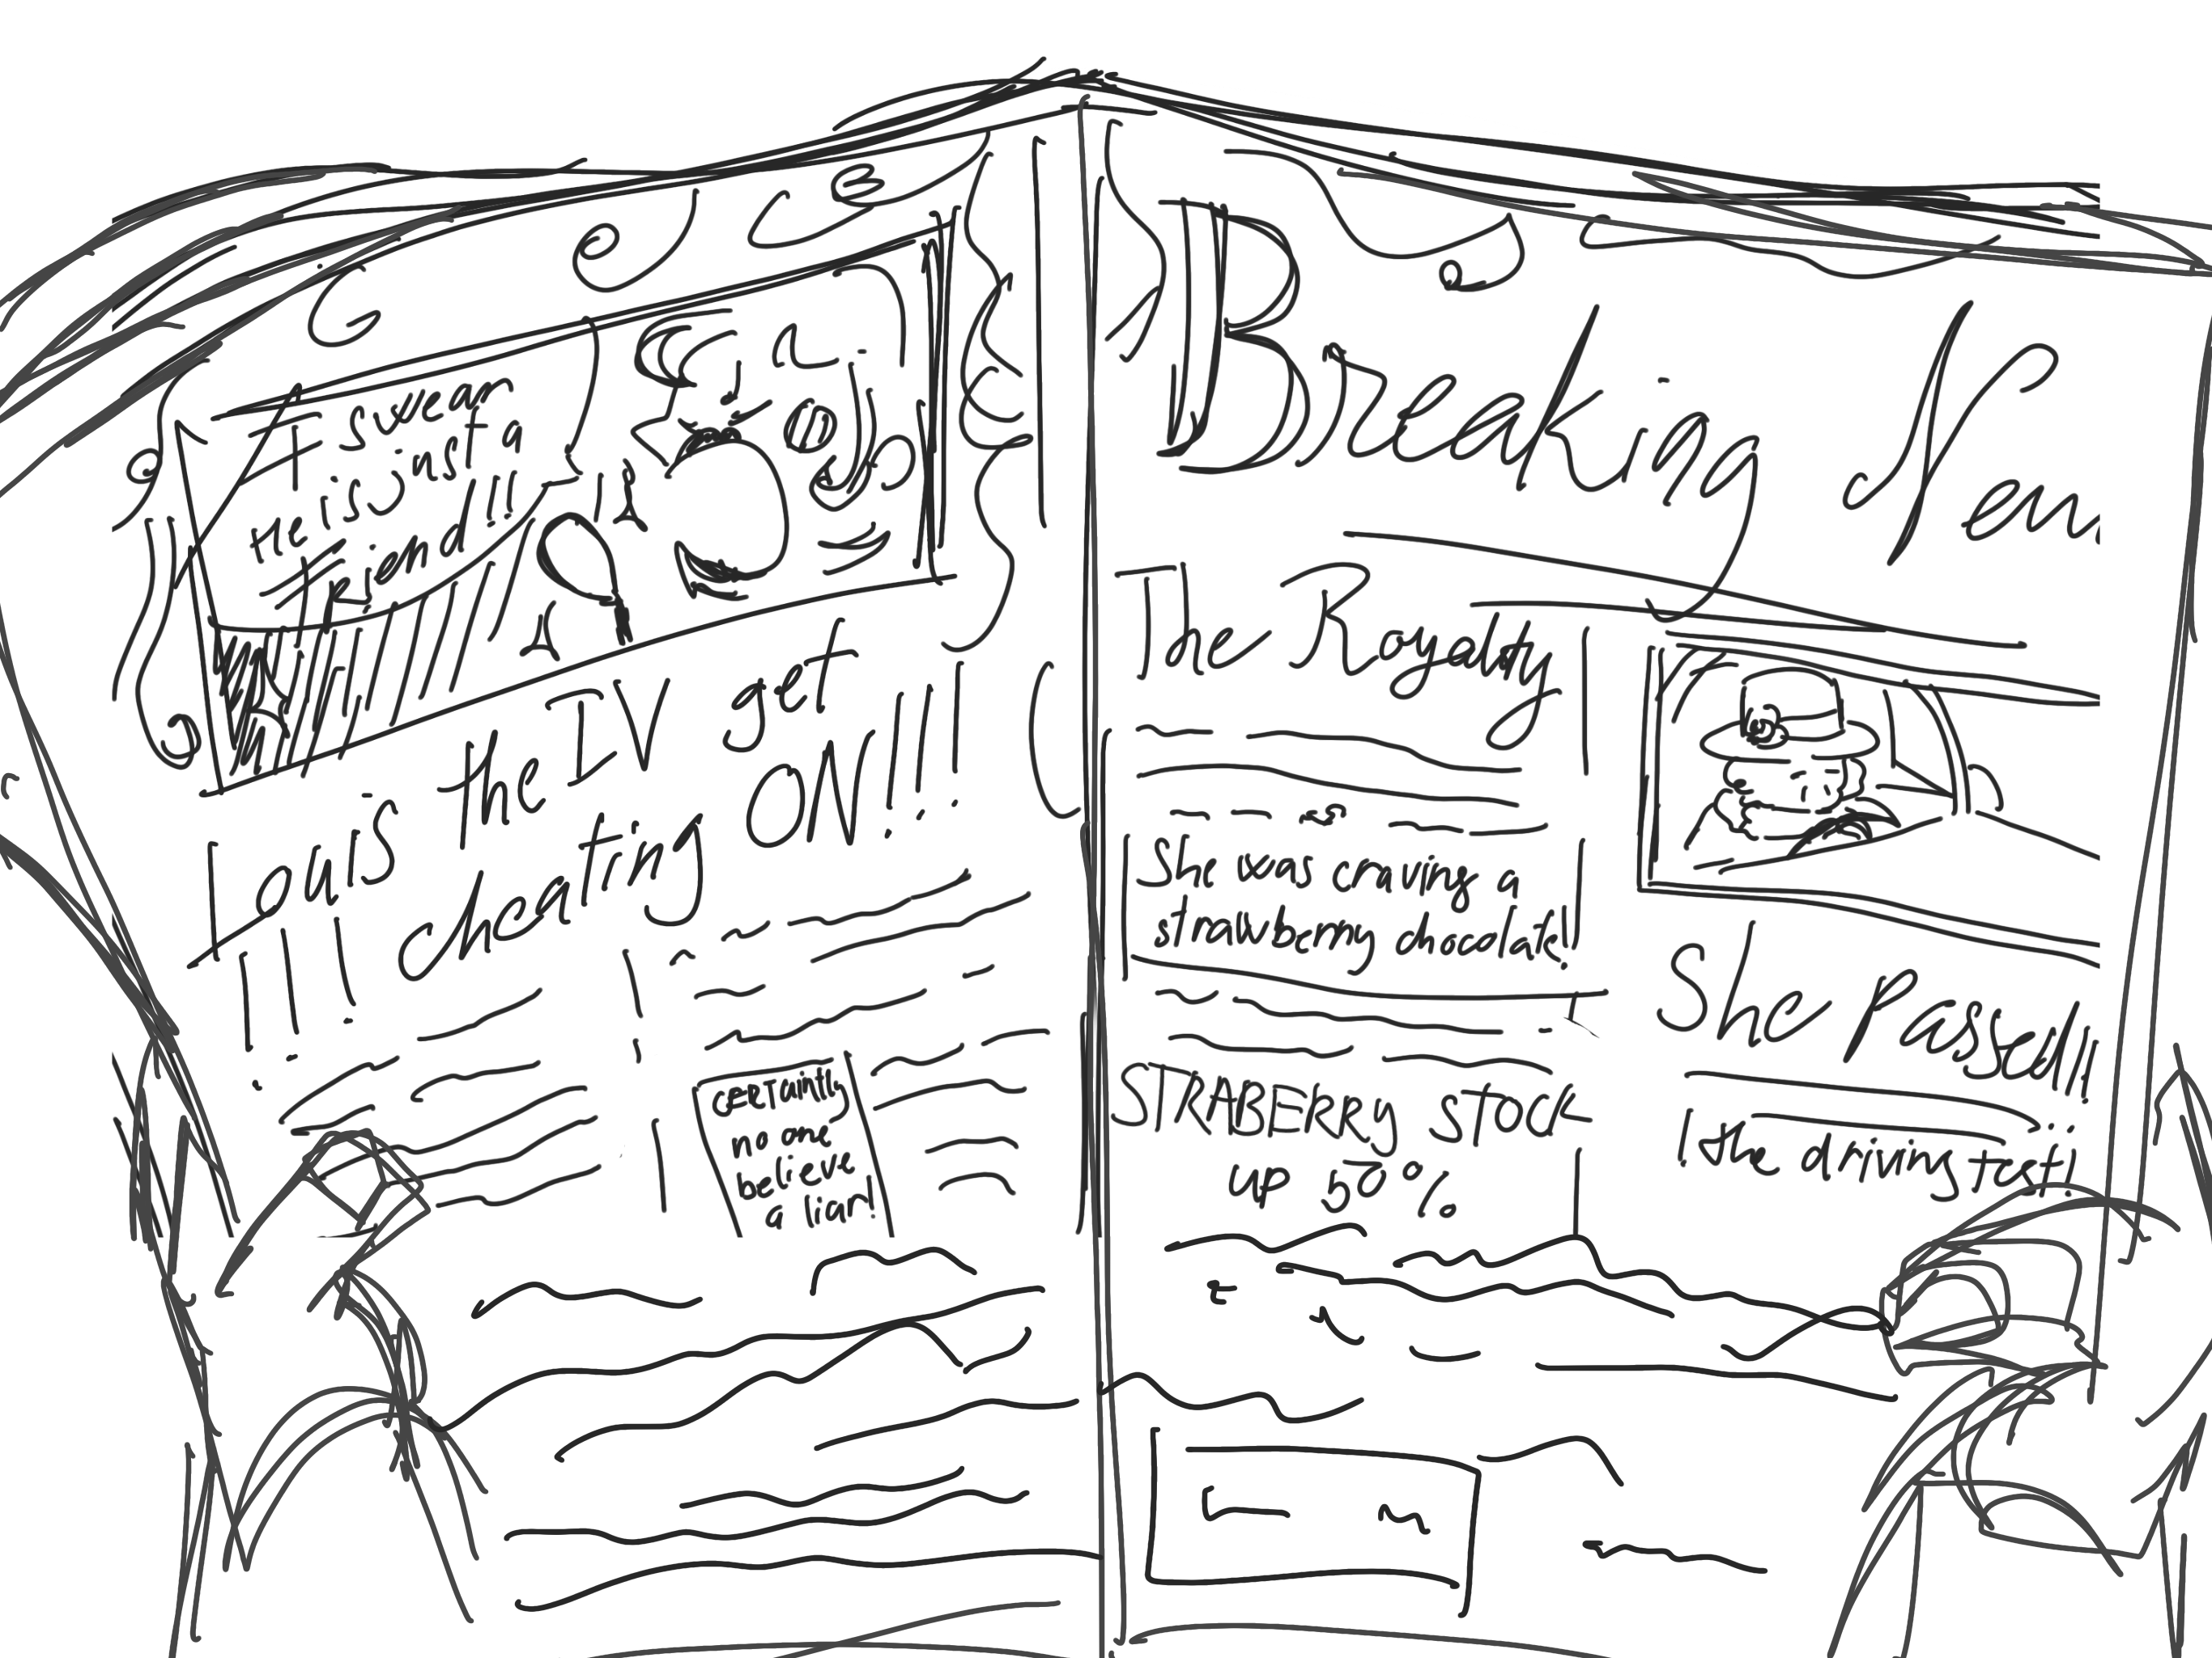 I swear
He is just a
friend!!!
Louis the IV get
cheating ON!!!
!!!
CERTAintly
no one
believe
a liar!
Breaking New
The Royalty
She was craving a
strawberry chocolate!
STRABERRY STOCK
up 50%
She Passed!!!
the driving test!